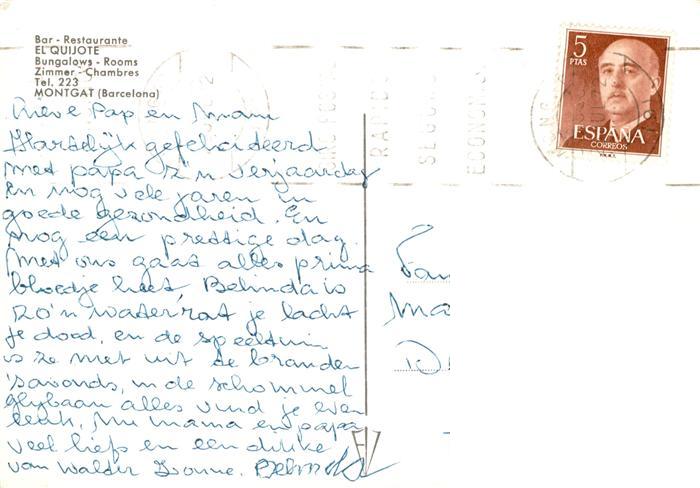 Bar - Restaurante
EL QUIJOTE
Bungalows - Rooms
Zimmer - Chambres
Tel. 223
MONTGAT (Barcelona)
5
PTAS
ESPAÑA
CORREOS
Lieve Pap en Mam
Hartelijk gefeliciteerd
met papa z'n verjaardag
en nog vele jaren in
goede gezondheid. En
nog een prettige dag.
Met ons gaat alles prima
bloedje heet, Belinda is
zo'n waterrat je lacht
je dood, en de speeltuin
is ze met uit de branden
's'avonds, in de schommel
glybaan alles vind je even
leuk, Nu mama en papa
veel liefs en een dikke
van Walder Ivonne. Belinda
Fam
Ma
D